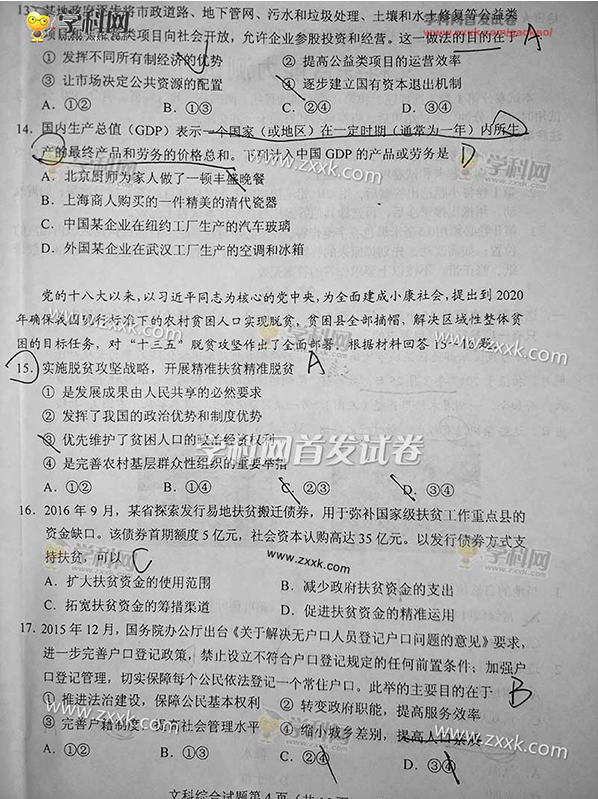 13. 某地政府逐步将市政道路、地下管网、污水和垃圾处理、土壤和水生修复等公益类
项目向社会开放，允许企业参股投资和经营。这一做法的目的在于 A
① 发挥不同所有制经济的优势 ② 提高公益类项目的运营效率
③ 让市场决定公共资源的配置 ④ 逐步建立国有资本退出机制
A．①② B．①③ C．②④ D．③④
14. 国内生产总值（GDP）表示一个国家（或地区）在一定时期（通常为一年）内所生
产的最终产品和劳务的价格总和。下列计入中国 GDP 的产品或劳务是 D
A．北京厨师为家人做了一顿丰盛晚餐
B．上海商人购买的一件精美的清代瓷器
C．中国某企业在纽约工厂生产的汽车玻璃
D．外国某企业在武汉工厂生产的空调和冰箱
党的十八大以来，以习近平同志为核心的党中央，为全面建成小康社会，提出到 2020
年确保我国现行标准下的农村贫困人口实现脱贫，贫困县全部摘帽，解决区域性整体贫
困的目标任务，对“十三五”脱贫攻坚作出了全面部署。根据材料回答 15—16 题。
15. 实施脱贫攻坚战略，开展精准扶贫精准脱贫 A
① 是发展成果由人民共享的必然要求
② 发挥了我国的政治优势和制度优势
③ 优先维护了贫困人口的政治经济权利
④ 是完善农村基层群众性组织的重要举措
C．②③ D．③④
16. 2016 年 9 月，某省探索发行易地扶贫搬迁债券，用于弥补国家级扶贫工作重点县的
资金缺口。该债券首期额度 5 亿元，社会资本认购高达 35 亿元。以发行债券方式支
持扶贫，可以 C
A．扩大扶贫资金的使用范围 B．减少政府扶贫资金的支出
C．拓宽扶贫资金的筹措渠道 D．促进扶贫资金的精准运用
17. 2015 年 12 月，国务院办公厅出台《关于解决无户口人员登记户口问题的意见》要求，
进一步完善户口登记政策，禁止设立不符合户口登记规定的任何前置条件；加强户
口登记管理，切实保障每个公民依法登记一个常住户口。此举的主要目的在于 B
① 推进法治建设，保障公民基本权利 ② 转变政府职能，提高服务效率
③ 完善户籍制度，提高社会管理水平 ④ 缩小城乡差别，提高人口素质
A．①② B．①③ C．②④ D．③④
文科综合试题第 4 页
学科网首发试卷
学科网
www.zxxk.com